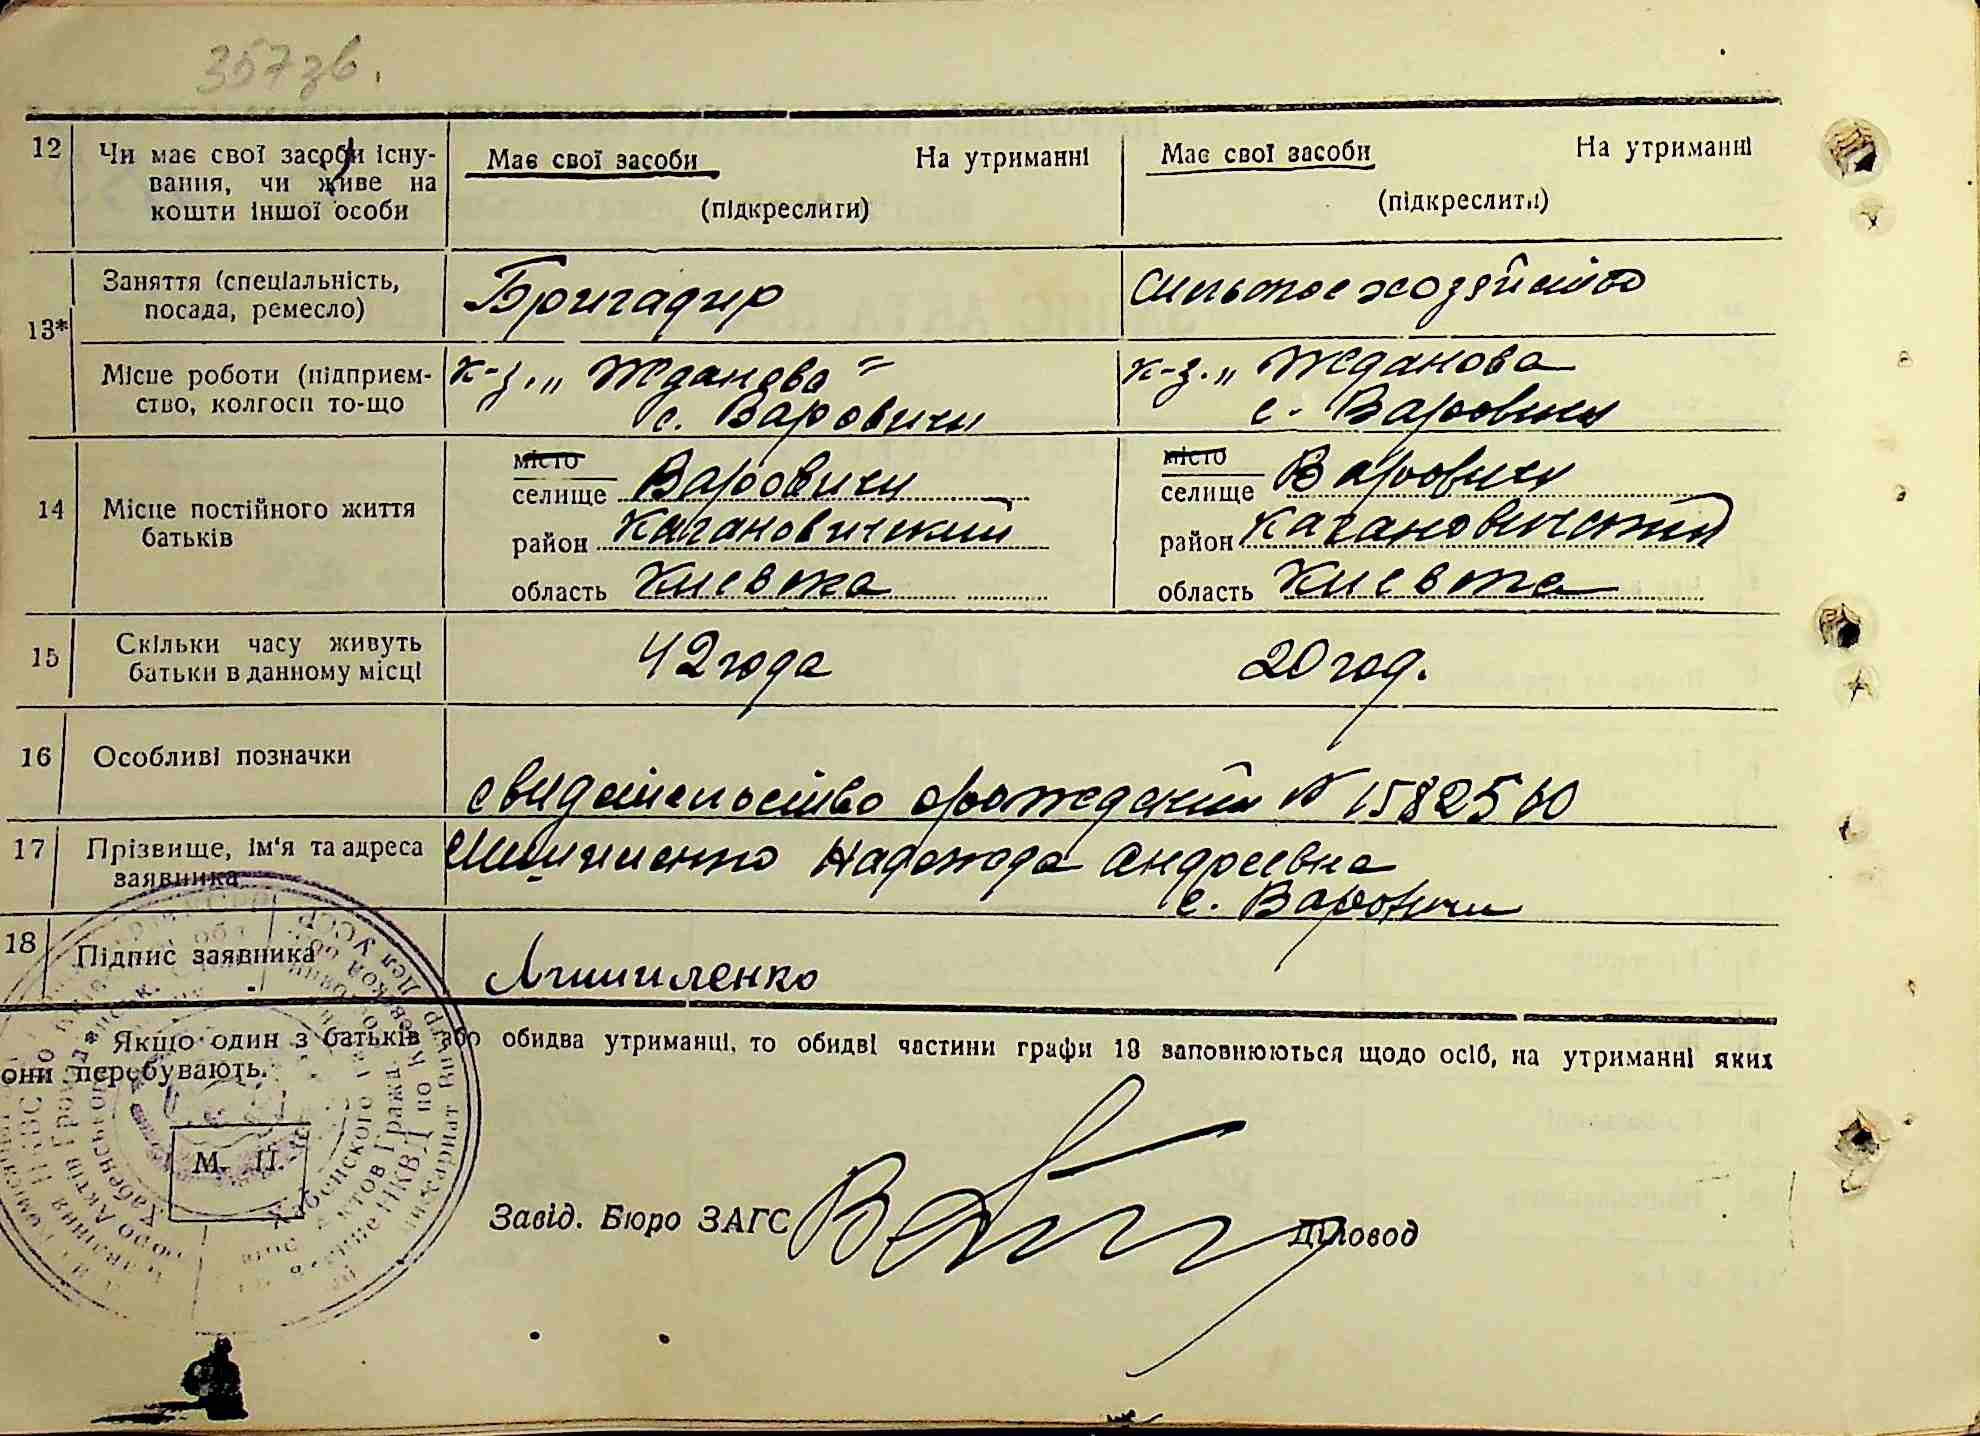 357 зв.
12 Чи має свої засоби існу- Має свої засоби На утриманні Має свої засоби На утриманні
вання, чи живе на
кошти іншої особи (підкреслити) (підкреслити)
Заняття (спеціальність, Бригадир сильское хозяйство
посада, ремесло)
13*
Місце роботи (підприєм- к-з. „Жданова" к-з. „Жданова
ство, колгосп то-що с. Варовичи с. Варовичи
місто місто
14 Місце постійного життя селище Варовичи селище Варовичи
батьків район Кагановичский район Кагановичский
область Киевска область Киевска
15 Скільки часу живуть 42 года 20 год.
батьки в данному місці
16 Особливі позначки
свидетельство орождении N 1582560
17 Прізвище, ім'я та адреса Надежда Андреевна
заявника с. Варовичи
18 Підпис заявника
Якщо один з батьків або обидва утриманці, то обидві частини графи 13 заповнюються щодо осіб, на утриманні яких
они перебувають.
М. П.
Завід. Бюро ЗАГС Діловод